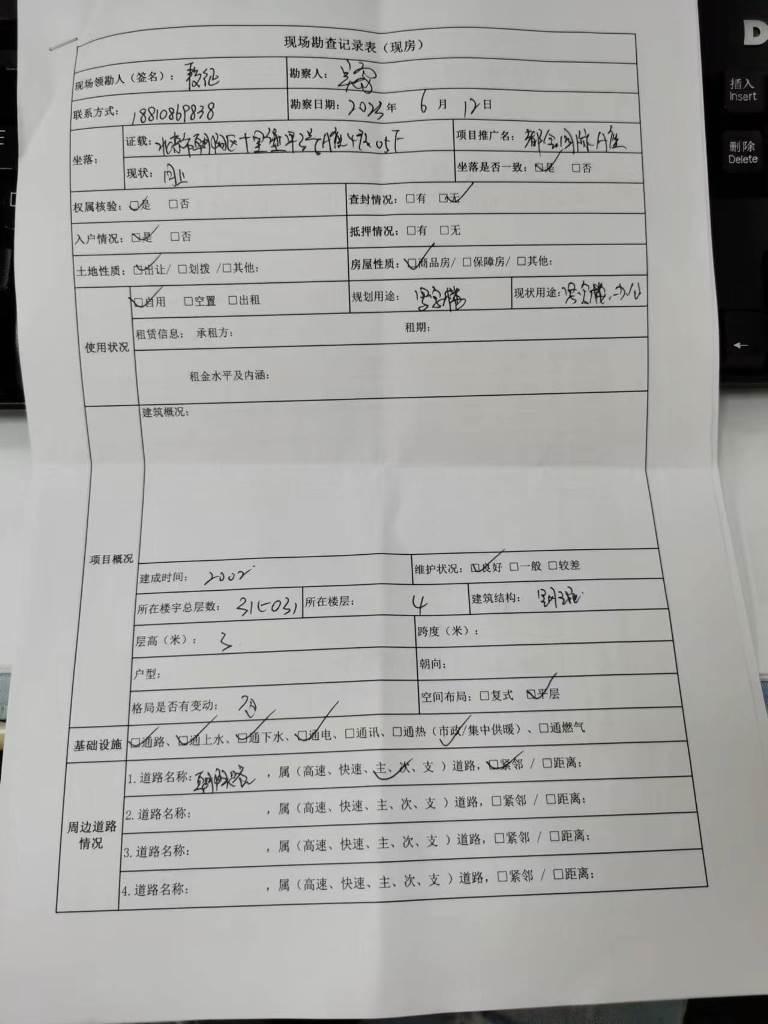 现场勘查记录表（现房）
现场领勘人（签名）： 勘察人：
联系方式：18810869838 勘察日期：2023年 6月 12日
坐落： 证载：北京市朝阳区十里堡 A座 05F 项目推广名：都会国际A座
现状：同上 坐落是否一致：☑是 □否
权属核验：☑是 □否 查封情况：□有 ☑无
入户情况：☑是 □否 抵押情况：□有 □无
土地性质：☑出让/ □划拨 /□其他： 房屋性质：☑商品房/ □保障房/ □其他：
使用状况 ☑自用 □空置 □出租 规划用途：写字楼 现状用途：写字楼、办公
租赁信息： 承租方： 租期：
租金水平及内涵：
项目概况 建筑概况：
建成时间：2002 维护状况：☑良好 □一般 □较差
所在楼宇总层数：31(-03) 所在楼层：4 建筑结构：钢混
层高（米）：3 跨度（米）：
户型： 朝向：
格局是否有变动：否 空间布局：□复式 ☑平层
基础设施 ☑通路、☑通上水、☑通下水、☑通电、□通讯、□通热（市政/集中供暖）、□通燃气
周边道路情况 1.道路名称：朝阳路，属（高速、快速、主、次、支 ）道路，☑紧邻 / □距离：
2.道路名称： ，属（高速、快速、主、次、支 ）道路，□紧邻 / □距离：
3.道路名称： ，属（高速、快速、主、次、支 ）道路，□紧邻 / □距离：
4.道路名称： ，属（高速、快速、主、次、支 ）道路，□紧邻 / □距离：
D
插入
Insert
删除
Delete
←